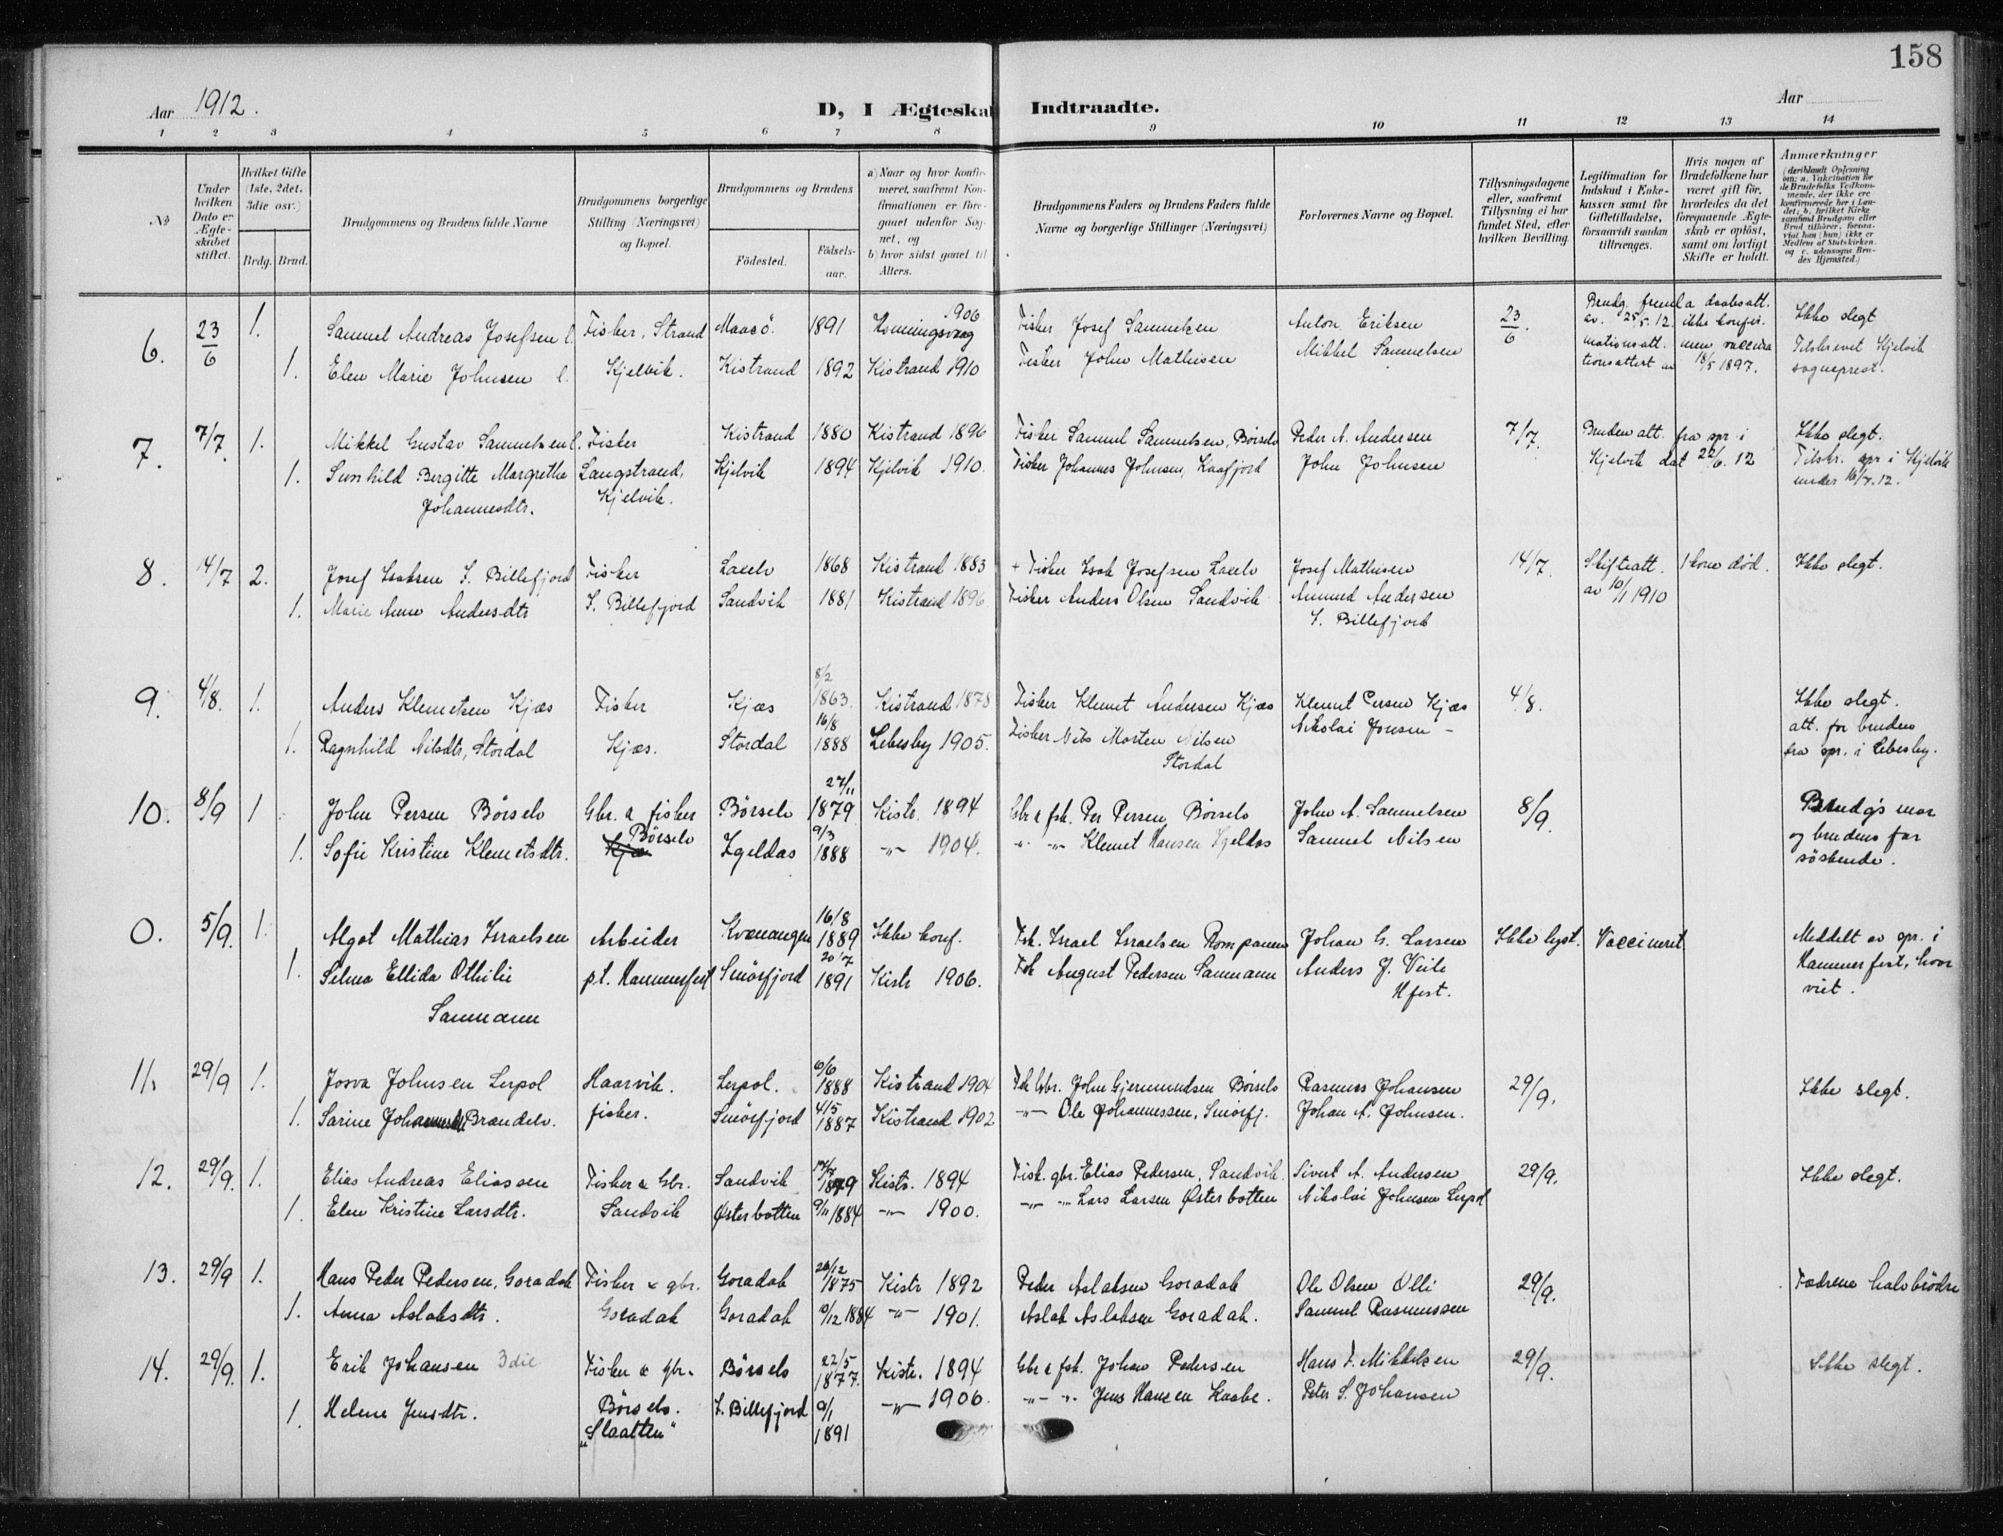 158
Aar 1912.
D, I Ægteskab Indtraadte.
Aar
1 2 3 4 5 6 7 8 9 10 11 12 13 14
No
Under hvilken Dato er Ægteskabet stiftet.
Hvilket Gifte (1ste, 2det, 3die osv.)
Brdg. Brud.
Brudgommens og Brudens fulde Navne
Brudgommens borgerlige Stilling (Næringsvei) og Bopæl.
Brudgommens og Brudens
Fødested.
Fødselsaar.
a) Naar og hvor konfirmeret, saafremt Konfirmationen er foregaaet udenfor Sognet, og
b) hvor sidst gaaet til Alters.
Brudgommens Faders og Brudens Faders fulde Navne og borgerlige Stillinger (Næringsvei)
Forlovernes Navne og Bopæl.
Tillysningsdagene eller, saafremt Tillysning ei har fundet Sted, efter hvilken Bevilling.
Legitimation for Indskud i Enkekassen samt for Giftetilladelse, forsaavidt saadan tiltrænges.
Hvis nogen af Brudefolkene har været gift før, hvorledes da det foregaaende Ægteskab er opløst, samt om lovligt Skifte er holdt.
Anmærkninger (deriblandt Oplysning om: a. Vakcination for de Brudefolks Vedkommende, der ikke ere konfirmerede her i Landet; b. hvilket Kirkesamfund Brudgom eller Brud tilhører, forsaavidt han (hun) ikke er Medlem af Statskirken. og c. udensogns Brudes Hjemsted.)
6. 23/6 1. Samuel Andreas Josefsen l. Fisker, Strand Maasö. 1891 1906 Honningsvaag Fisker Josef Samuelsen Anton Eriksen 23/6. Brudg. freml a daabsatt. av 25/5.12. ikke konfirmationsatt. men vaccinationsattest av 18/5 1897. Ikke slegt
1. Elen Marie Johnsen l. Kjelvik. Kistrand 1892 Kistrand 1910 Fisker John Mathisen Mikkel Samuelsen Tilskrevet Kjelvik sogneprest.
7. 7/7. 1. Mikkel Gustav Samuelsen l. Fisker Kistrand 1880 Kistrand 1896 Fisker Samuel Samuelsen, Børselv Peder A. Andersen 7/7. Bruden att. fra spr i Kjelvik dat 22/6. 12 Ikke slegt.
1. Sunhild Bergitte Margrethe Johannesdtr. Langstrand, Kjelvik. Kjelvik 1894 Kjelvik 1910. Fisker Johannes Johnsen, Kaafjord John Johnsen Tilskr. spr i Kjelvik under 16/7.12.
8. 14/7 2. Josef Isaksen S. Billefjord Fisker Laxelv 1868 Kistrand 1883 + Fisker Isak Josefsen Laxelv Josef Mathisen 14/7. Skifteatt. av 10/1 1910 1 kone död. Ikke slegt.
1. Marie Anne Andersdtr S. Billefjord Sandvik 1881 Kistrand 1896 Fisker Anders Olsen Sandvik Ammud Andersen S. Billefjord
9. 4/8. 1. Anders Klemetsen Kjæs Fisker Kjæs 8/2 1863. Kistrand 1878 Fisker Klemet Andersen Kjæs Klemet Persen Kjæs 4/8. Ikke slegt.
1. Ragnhild Nilsdtr, Stordal Kjæs. Stordal 16/8 1888 Lebesby 1905. Fisker Nils Morten Nilsen Stordal Nikolai Jonsen - att. for bruden fra spr. i Lebesby.
10. 8/9 1 John Persen Børselv Gbr. & fisker Børselv 27/11 1879 Kistr. 1894 Gbr & fsk. Per Persen Børselv John A. Samuelsen 8/9. Brudg's mor og brudens far söskende.
1. Sofie Kristine Klemetsdtr. Børselv Kjæs Igeldas 9/3 1888 -"- 1904. " -"- Klemet Hansen Igeldas Samuel Nilsen
0. 5/9. 1. Algot Mathias Israelsen Arbeider Kvænangen 16/8 1889 Ikke konf. Fsk. Israel Israelsen Rompanen Johan G. Larsen Ikke lyst. Vaccineret Meddelt av spr. i Hammerfest, hvor viet.
1. Selma Ellida Othilie Sanmann p.t. Hammerfest Smörfjord 20/7 1891 Kistr 1906. Fsk August Pedersen Sanmann Anders J. Veite Hfest.
11. 29/9 1. Josva Johnsen Lerpol Haarvik. Lerpol. 6/6 1888 Kistrand 1904 Fsk Gbr. John Gjermundsen Børselv Rasmus Johansen 29/9. Ikke slegt.
1. Sarine Johannesdtr Brandelv. fisker. Smörfjord 4/5 1887 Kistrand 1902 -"- Ole Johannessen, Smörfj. Johan A. Johnsen.
12. 29/9. 1. Elias Andreas Eliassen Fisker & Gbr. Sandvik 1879 Kistr. 1894 Fisk. gbr. Elias Pedersen, Sandvik. Sivert A. Andersen 29/9. Ikke slegt.
1. Elen Kristine Larsdtr. Sandvik Østerbotten 9/11 1884 -"- 1900. -"- -"- Lars Larsen Østerbotten Nikolai Johnsen Lerpol
13. 29/9 1. Hans Peder Pedersen, Goradak Fisker & gbr. Goradak 26/12 1875 Kistr 1892 Peder Aslaksen Goradak Ole Olsen Olli 29/9. Fædrene halvbrödre
1. Anna Aslaksdtr. Goradak Goradak 10/12 1884 -"- 1901. Aslak Aslaksen Goradak. Samuel Rasmussen
14. 29/9. 1. Erik Johansen 3die Fisker & gbr. Børselv 22/5 1877. Kistr. 1894 Gbr & fsk. Johan Pedersen Hans F. Mikkelsen 29/9. Ikke slegt.
1. Helene Jensdtr. Börselv. "Slaatten" S. Billefjord 9/1 1891 -"- 1906. -"- -"- Jens Hansen Kaabe. Peter S. Johansen